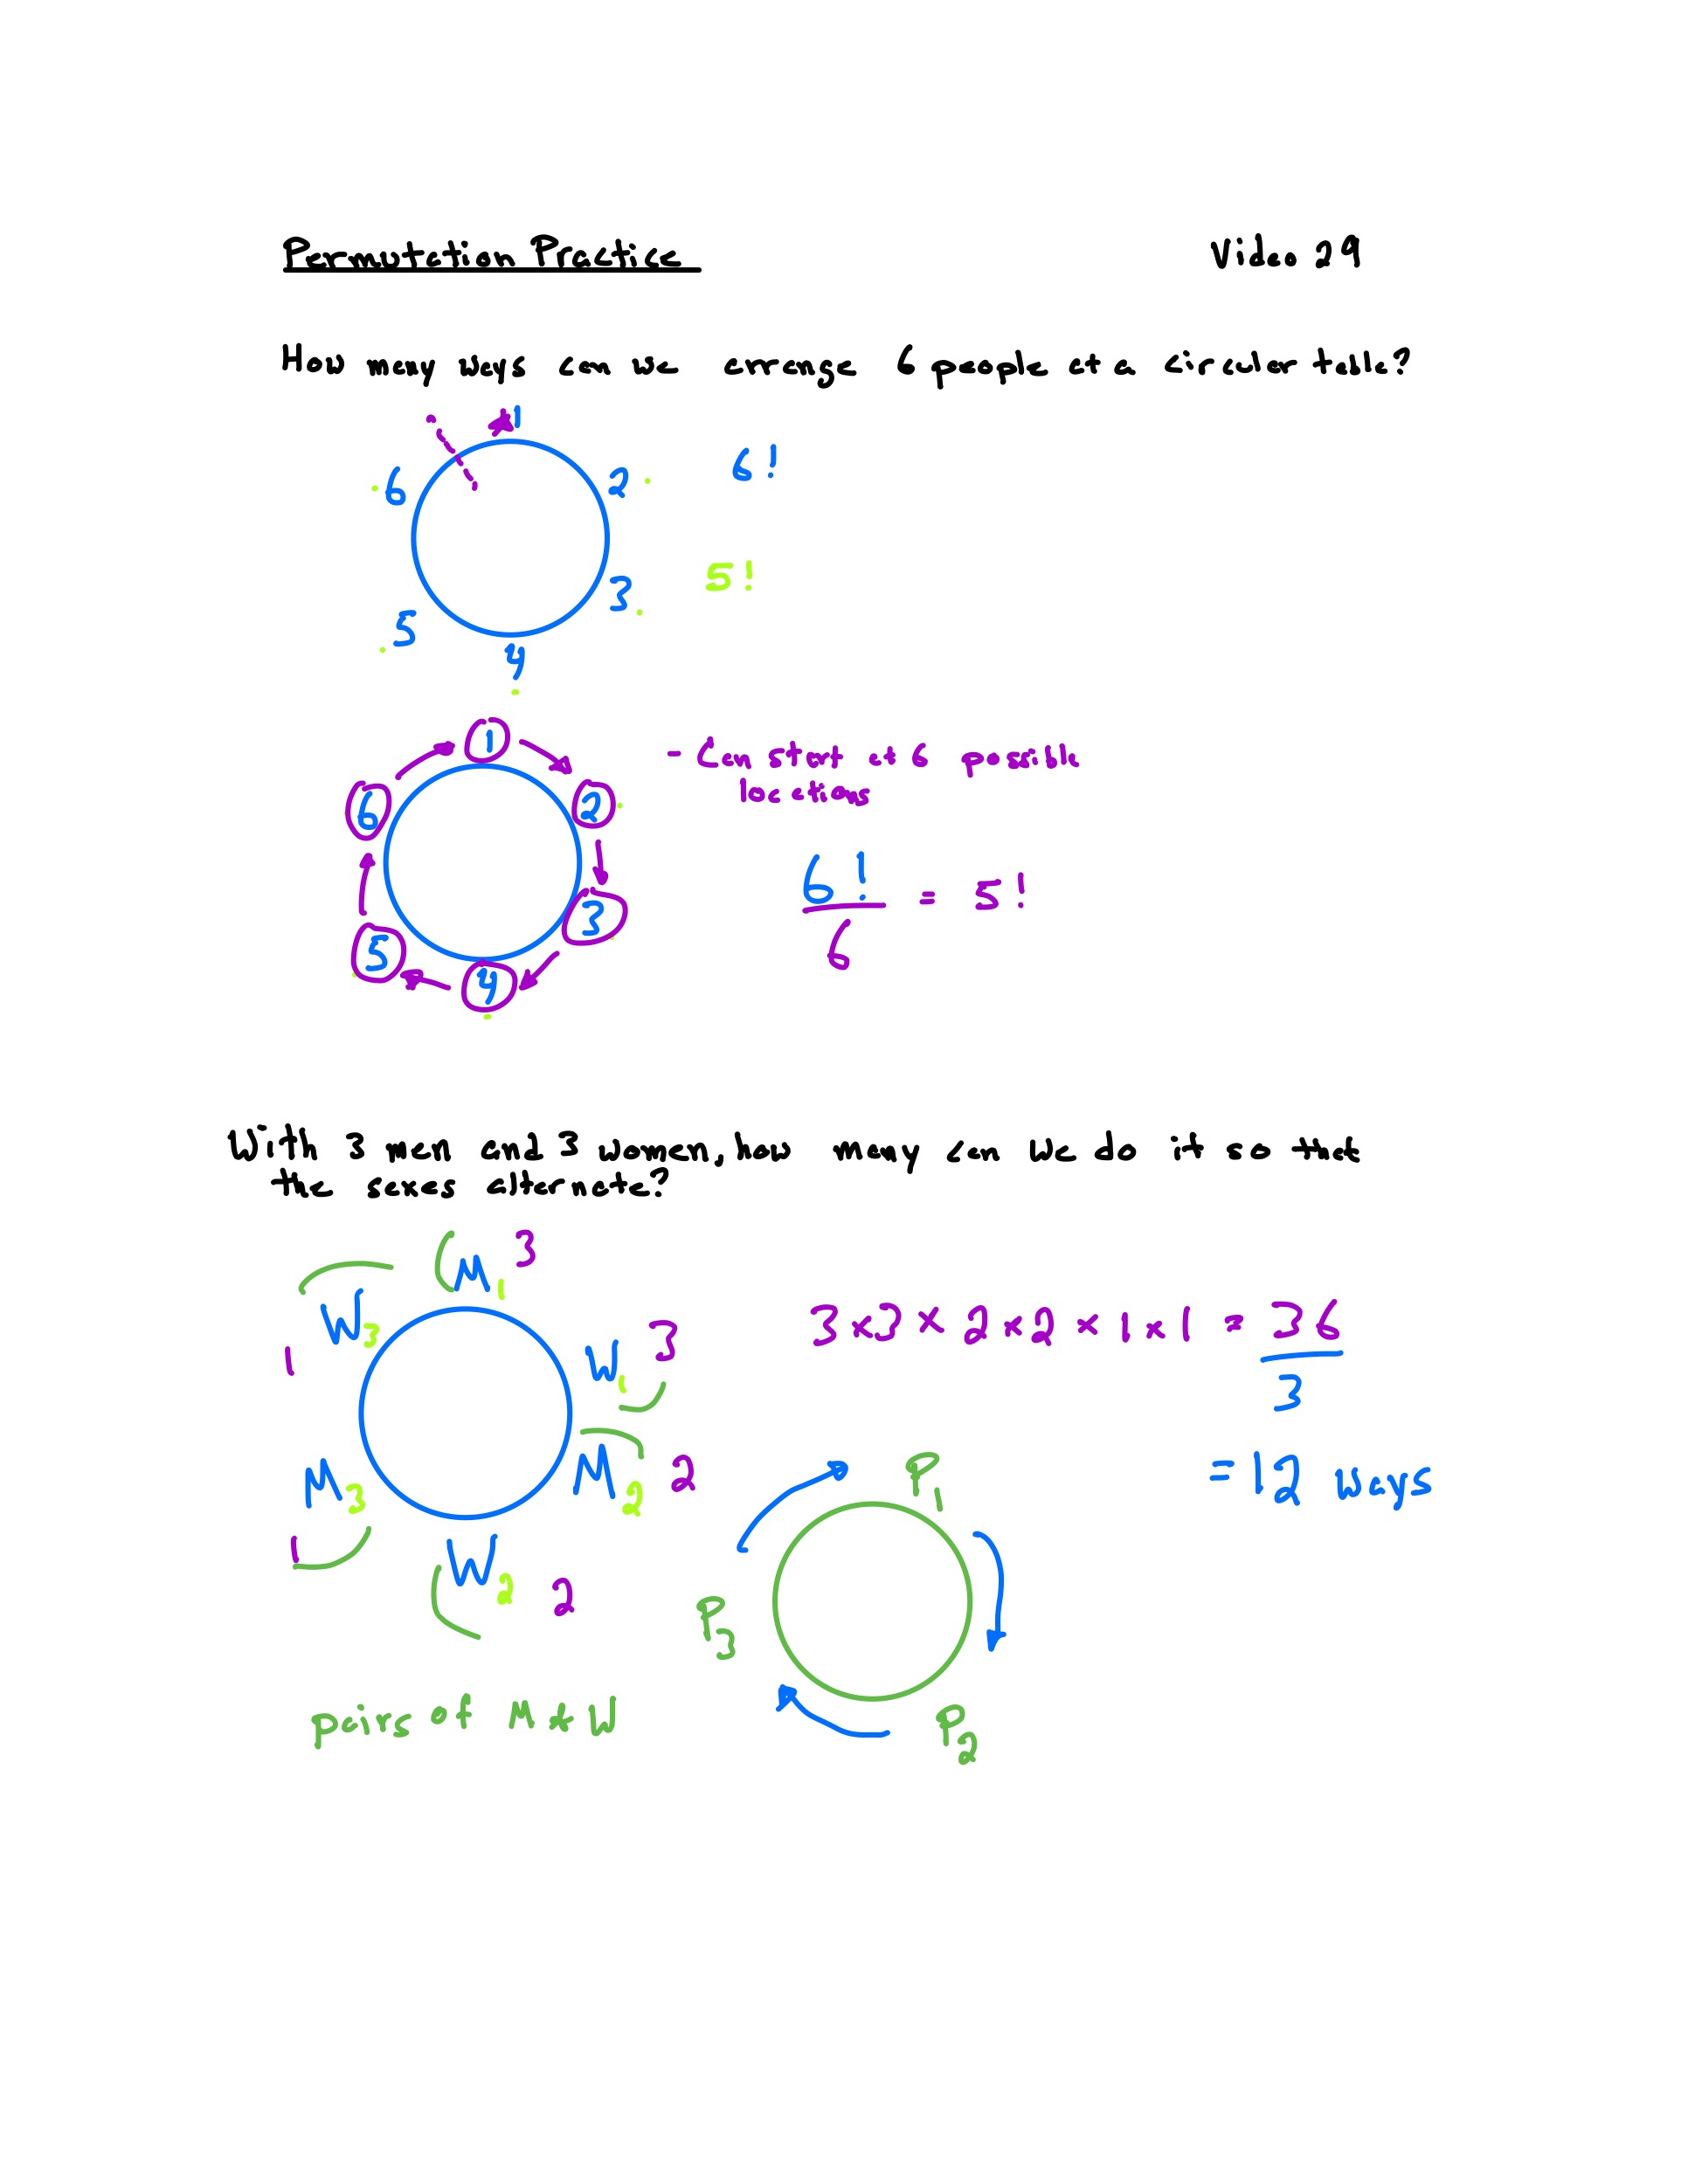 Permutation Practice
Video 29
How many ways can we arrange 6 people at a circular table?
1
6
2
6!
5!
3
5
4
1
- Can start at 6 possible
locations
6
2
6! / 6 = 5!
3
5
4
With 3 men and 3 women, how many can we do it so that
the sexes alternate?
M1 3
W3 1
W1 3
3 x 3 x 2 x 2 x 1 x 1 = 36 / 3
= 12 ways
M3 1
M2 2
W2 2
P1
P3
P2
pairs of M & W